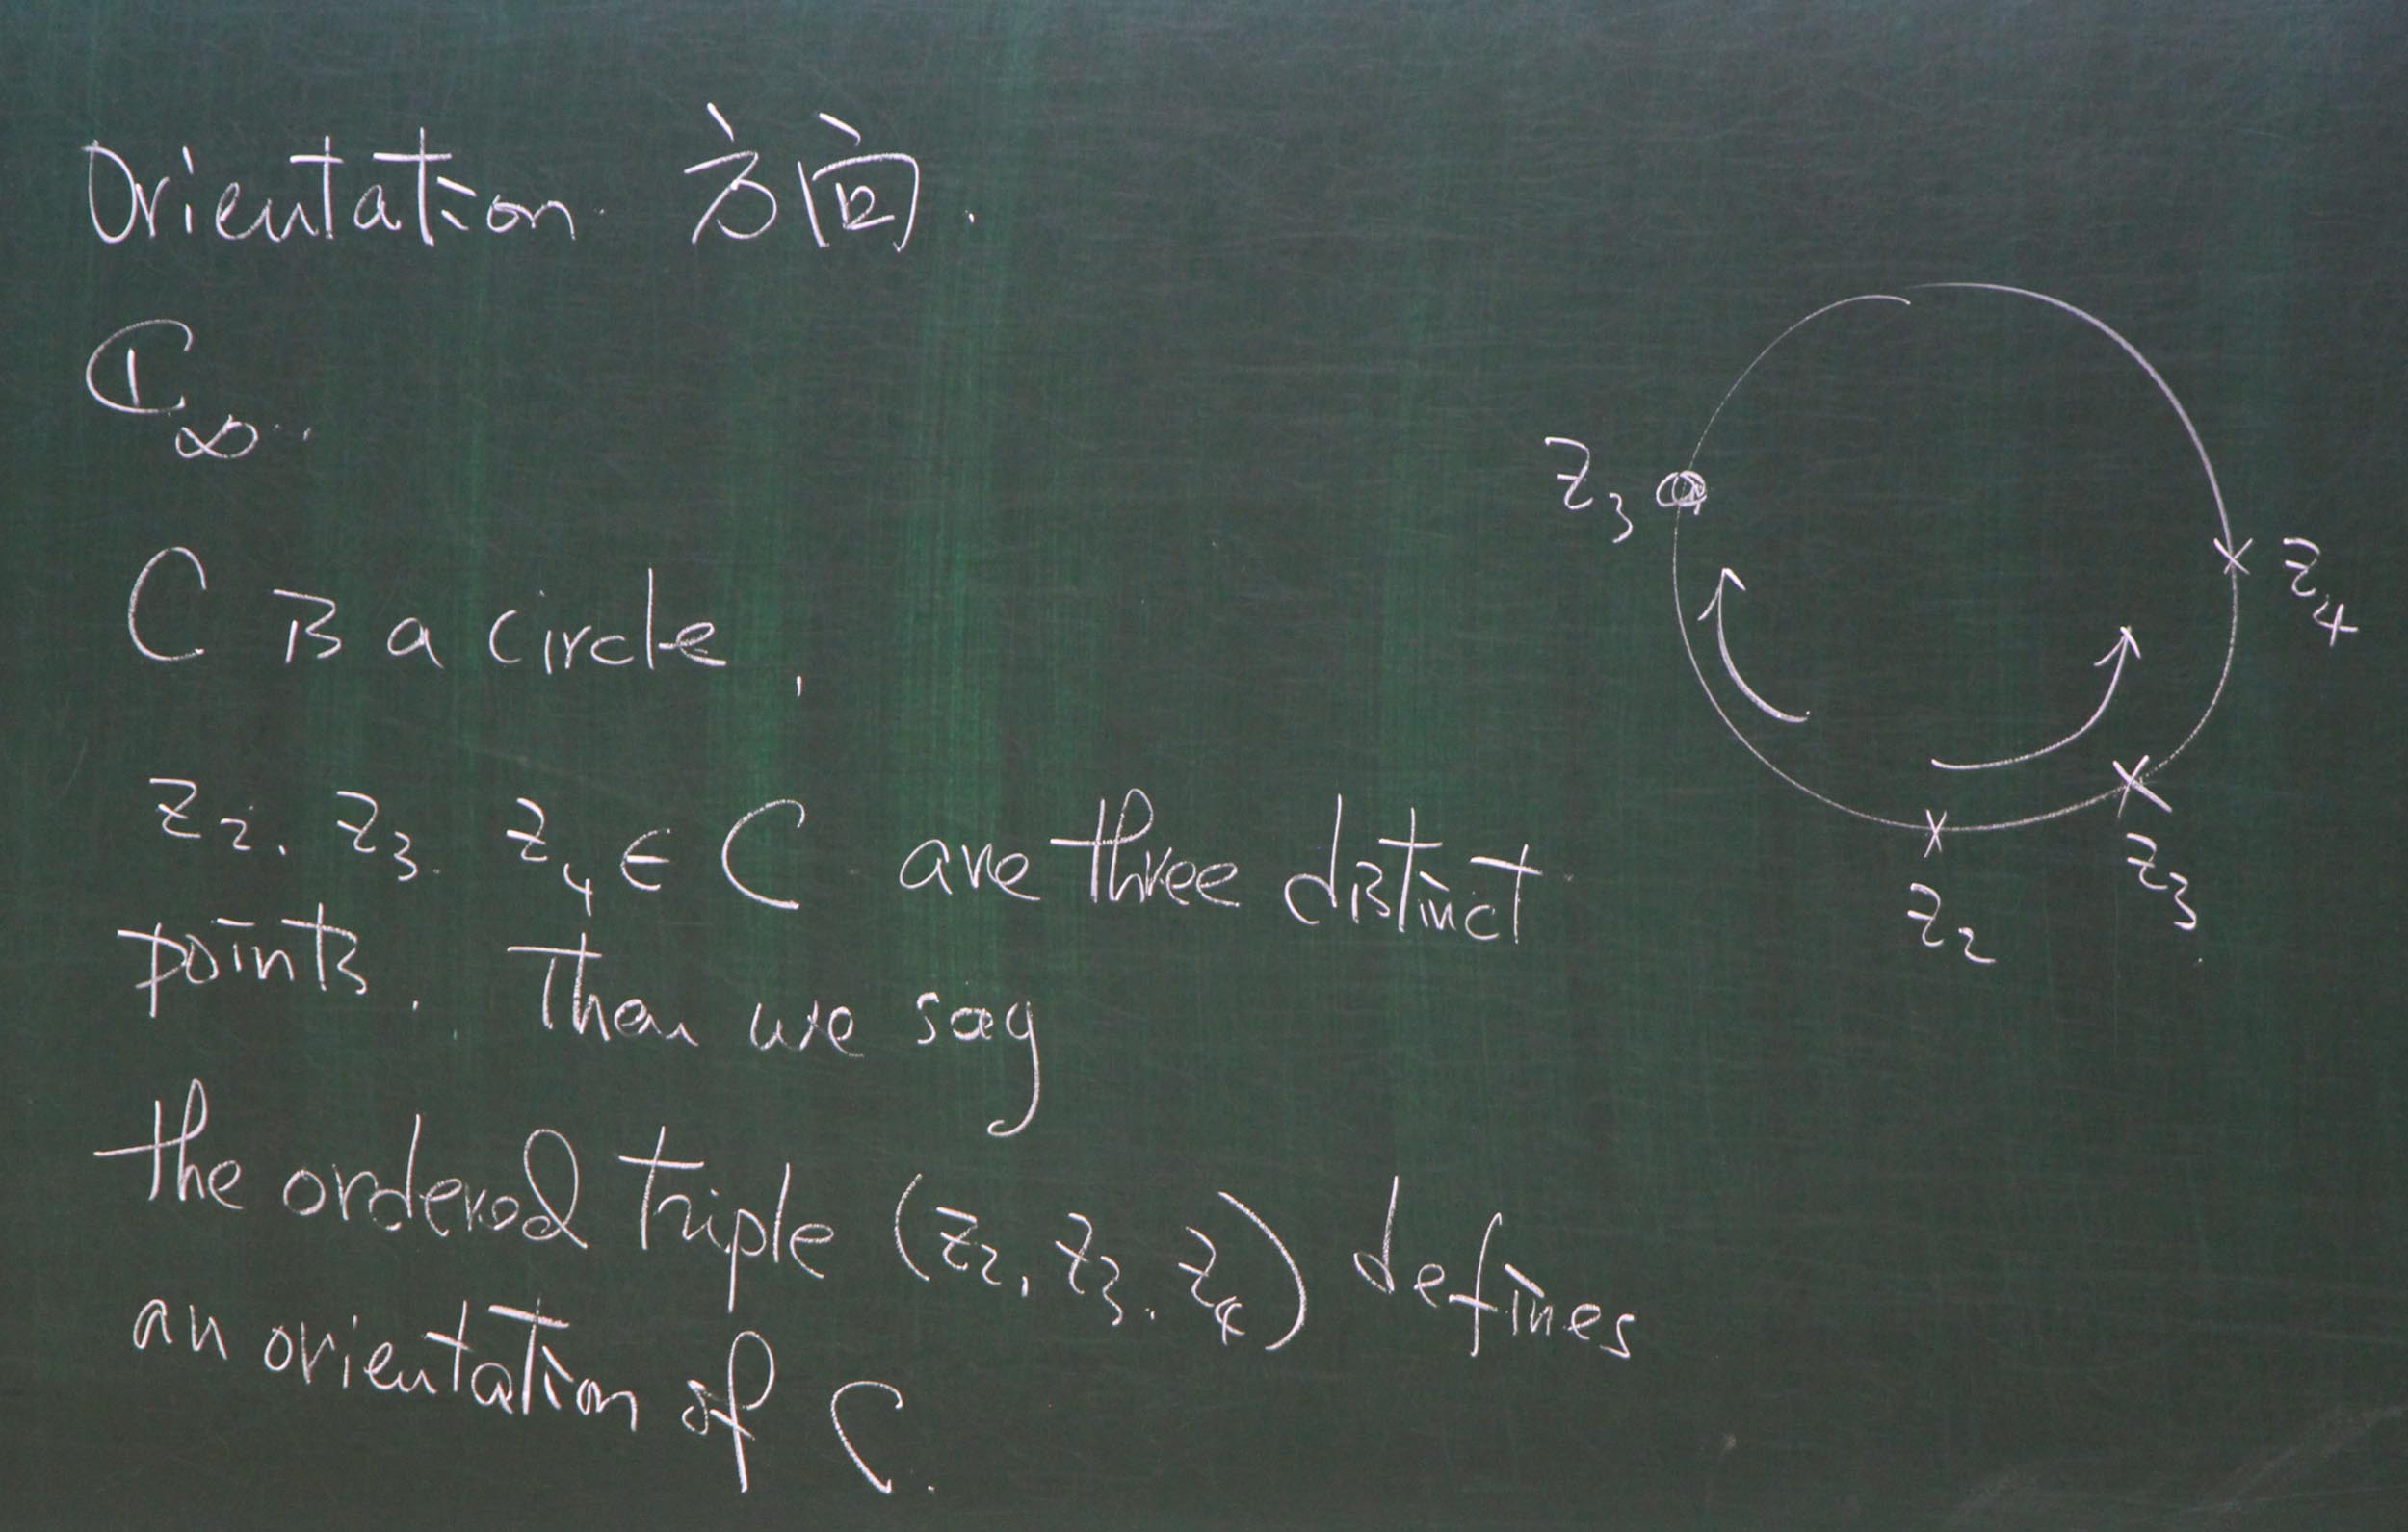 Orientation 方向.
ℂ∞
C is a circle,
z₂, z₃, z₄ ∈ C are three distinct
points. Then we say
the ordered triple (z₂, z₃, z₄) defines
an orientation of C.
z₃
z₄
z₃
z₂